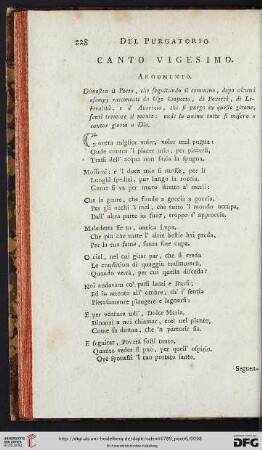 228 DEL PURGATORIO
CANTO VIGESIMO.
ARGOMENTO.
Dimostra il Poeta, che seguitando il cammino, dopo alcuni
esempj raccontati da Ugo Ciapetta, di Povertà, di Li-
beralità, e d' Avarizia, che si purga in questo girone,
sentì tremare il monte: onde le anime tutte si misero a
cantar gloria a Dio.
Contra miglior voler, voler mal pugna:
Onde contra 'l piacer mio, per piacerli,
Trassi dell' acqua non sazia la spugna.
Mossimi: e 'l duca mio si mosse, per li
Luoghi spediti, pur lungo la roccia,
Come si va per muro stretto a' merli:
Che la gente, che fonde a goccia a goccia,
Per gli occhi 'l mal, che tutto 'l mondo occupa,
Dall' altra parte in fuor, troppo s' approccia.
Maladetta sie tu, antica lupa,
Che più che tutte l' altre bestie hai preda,
Per la tua fame, senza fine cupa.
O ciel, nel cui girar par, che si creda
Le condizion di quaggiù trasmutarsi,
Quando verrà, per cui questa disceda?
Noi andavam co' passi lenti e scarsi;
Ed io attento all' ombre, ch' i' sentia
Pietosamente piangere e lagnarsi:
E per ventura udi', Dolce Maria,
Dinanzi a noi chiamar, così nel pianto,
Come fa donna, che 'n partorir sia.
E seguitar, Povera fosti tanto,
Quanto veder si può, per quell' ospizio,
Ove sponesti 'l tuo portato santo.
Seguen-